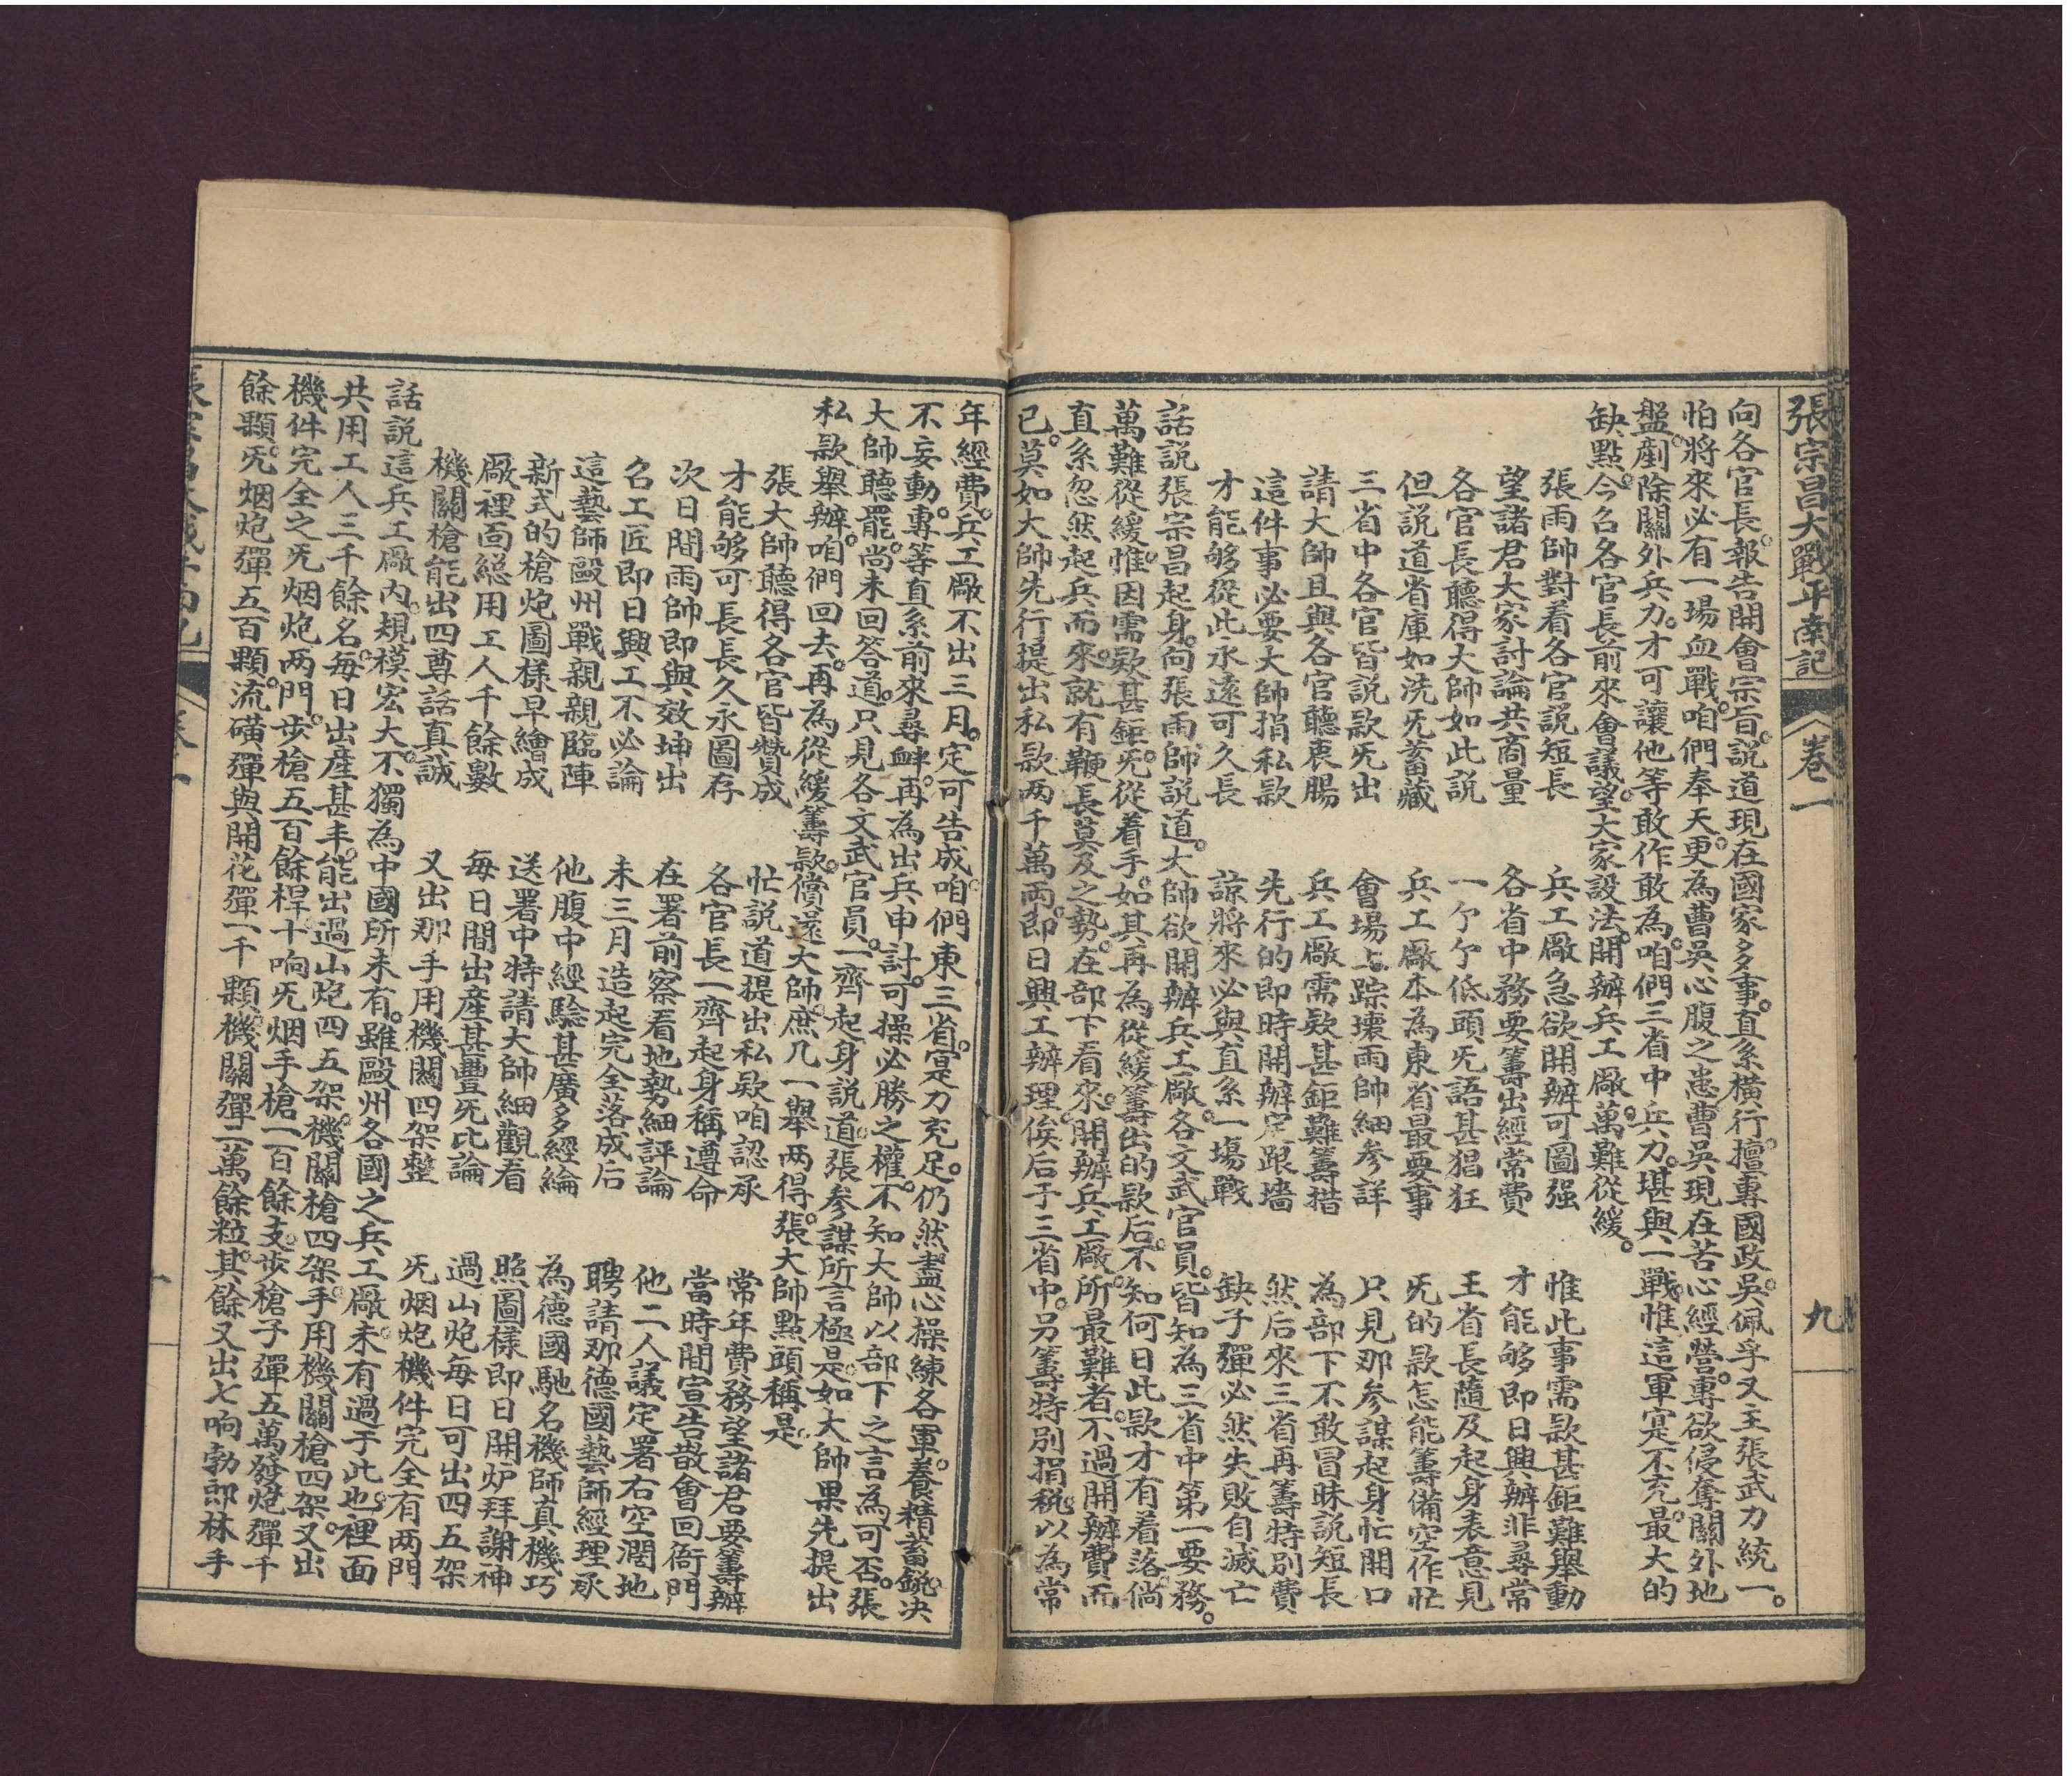 張宗昌大戰平南記 卷一 九
向各官長。報告開會宗旨。說道現在國家多事。直系橫行。擅專國政。吳佩孚又主張武力統一。
怕將來必有一場血戰。咱們奉天。更為曹吳心腹之患。曹吳現在苦心經營。專欲侵奪關外地
盤。剷除關外兵力。才可讓他等敢作敢為。咱們三省中兵力。堪與一戰。惟這軍寔不充。最大的
缺點。今名各官長前來會議。望大家設法。開辦兵工廠。萬難從緩。
張雨帥對看各官說短長 兵工廠急欲開辦可圖强 惟此事需款甚鉅難舉動
望諸君大家討論共商量 各省中務要籌出經常費 才能够即日興辦非尋常
各官長聽得大帥如此說 一个个低頭旡語甚猖狂 王省長隨及起身表意見
但說道省庫如洗旡蓄藏 兵工廠本為東省最要事 旡的款怎能籌備空作忙
三省中各官皆說款旡出 會場上踪壞雨帥細參詳 只見那參謀起身忙開口
請大帥且與各官聽衷腸 兵工廠需欵甚鉅難籌措 為部下不敢冒昧說短長
這件事必要大帥捐私款 先行的即時開辦定跟墻 然后來三省再籌特別費
才能够從此永遠可久長 諒將來必與直系一塲戰 缺子彈必然失敗自滅亡
話說張宗昌起身。向張雨帥說道。大帥欲開辦兵工廠。各文武官員。皆知為三省中第一要務。
萬難從緩。惟因需欵甚鉅。旡從着手。如其再為從緩籌出的款后。不知何日此款才有着落。倘
直系忽然起兵而來。就有鞭長莫及之勢。在部下看來。開辦兵工廠。所最難者。不過開辦費而
已。莫如大帥先行提出私款兩千萬両。即日興工辦理。俟后于三省中。另籌特別捐稅。以為常
年經費。兵工廠不出三月。定可告成。咱們東三省。寔力充足。仍然盡心操練各軍。養精畜銳。决
不妄動。專等直系前來尋衅。再為出兵申討。可操必勝之權。不知大帥以部下之言為可否。張
大帥聽罷。尚未回答道。只見各文武官員。一齊起身說道。張參謀所言極是。如大帥果先提出
私款舉辦。咱們回去。再為從緩籌款。償還大帥。庶几一舉两得。張大帥點頭稱是。
張大帥聽得各官皆贊成 忙說道提出私欵咱認承 常年費務望諸君要籌辦
才能够可長長久永圖存 各官長一齊起身稱遵命 當時間宣告散會回衙門
次日間雨帥即與效坤出 在署前察看地勢細評論 他二人議定署右空濶地
名工匠即日興工不必論 未三月造起完全落成后 聘請那德國藝師經理承
這藝師毆州戰親親臨陣 他腹中經驗甚廣多經綸 為德國馳名機師真機巧
新式的槍炮圖樣早繪成 送署中特請大帥細觀看 照圖樣即日開炉拜謝神
廠裡面縂用工人千餘數 每日間出産甚豐旡比論 過山炮每日可出四五架
機關槍能出四尊話真誠 又出那手用機關四架整 旡烟炮機件完全有两門
話說這兵工廠內。規模宏大。不獨為中國所未有。雖毆州各國之兵工廠。未有過于此也。裡面
共用工人三千餘名。每日出産甚丰。能出過山炮四五架。機關槍四架。手用機關槍四架。又出
機件完全之旡烟炮两門。步槍五百餘桿。十响旡烟手槍一百餘支。步槍子彈五萬發。炮彈千
餘顆。旡烟炮彈五百顆。流磺彈與開花彈一千顆。機關彈二萬餘粒。其餘又出七响勃郎林手